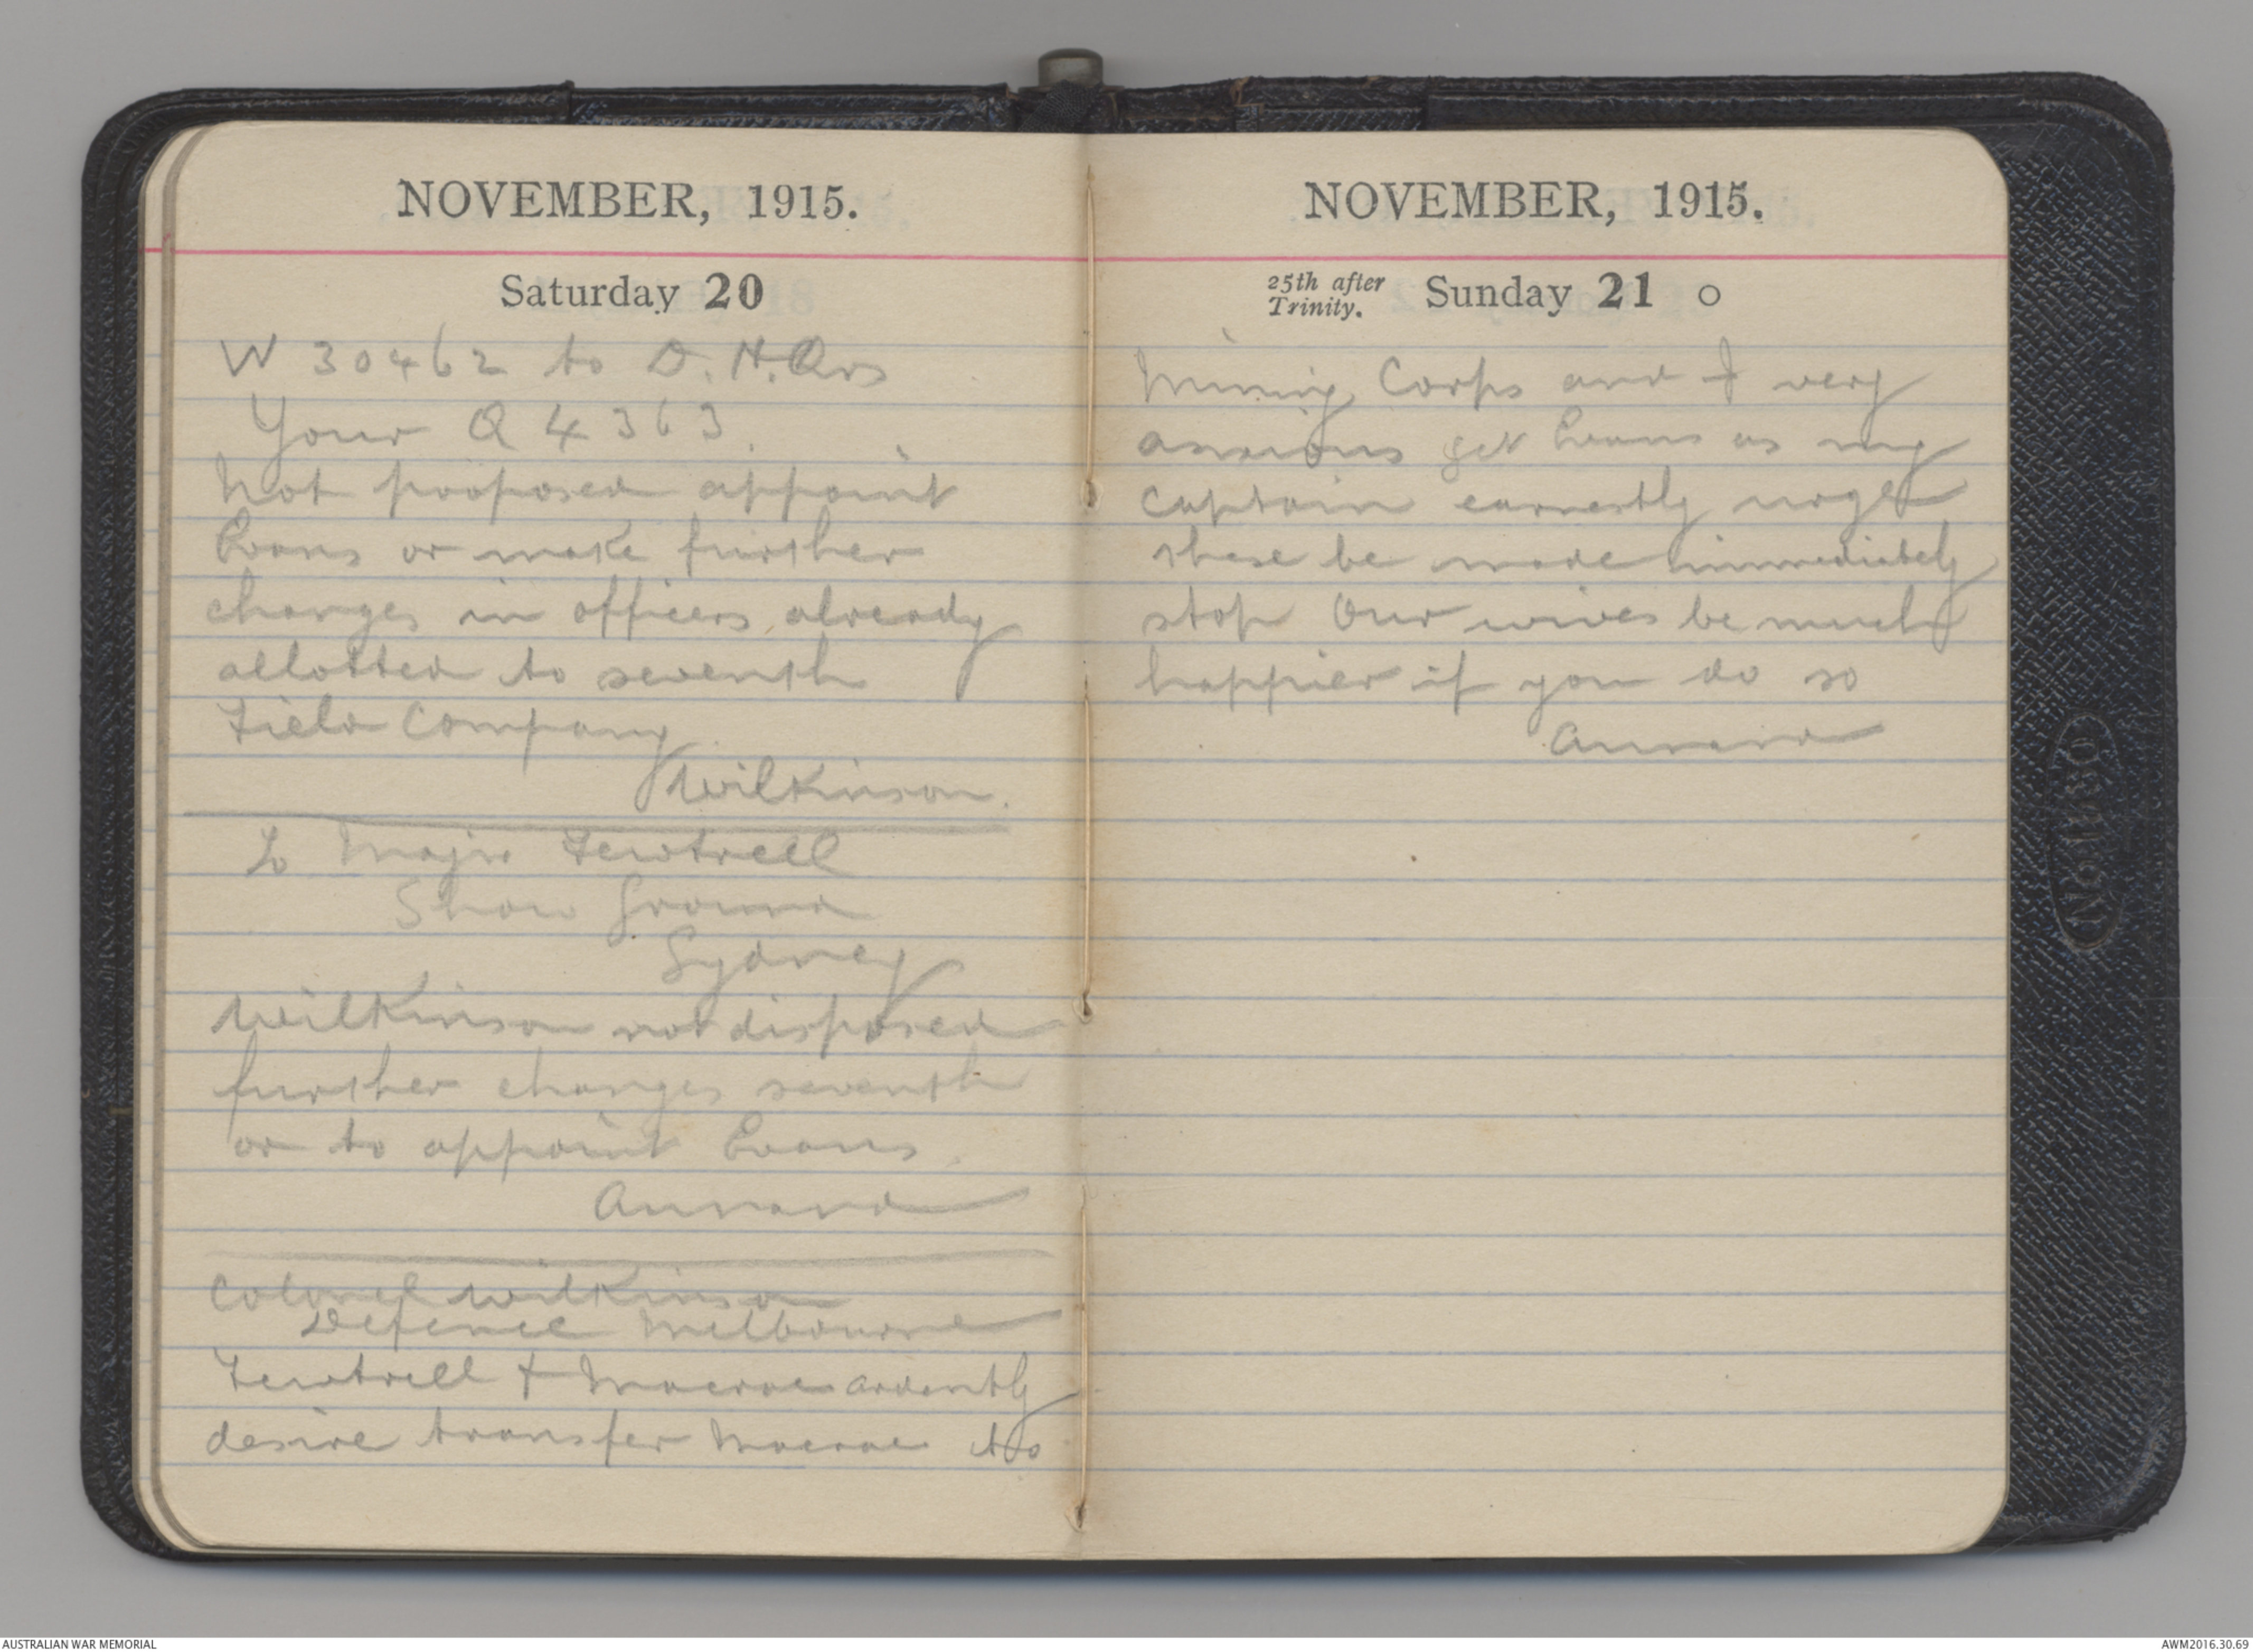 NOVEMBER, 1915.
Saturday 20
W 30462 to D.H.Qrs
Your Q 4363.
Not proposed appoint
Evans or make further
changes in officers already
allotted to seventh
Field Company
Wilkinson.
To Major Fewtrell
Show Ground
Sydney
Wilkinson not disposed
further changes seventh
or to appoint Evans.
Annand
Colonel Wilkinson
Defence Melbourne
Fewtrell & Macrae ardently
desire transfer Macrae to
NOVEMBER, 1915.
25th after
Trinity. Sunday 21 o
Mining Corps and I very
anxious get Evans as my
Captain earnestly urge
these be made immediately
stop Our wives be much
happier if you do so
Annand
AUSTRALIAN WAR MEMORIAL
AWM2016.30.69